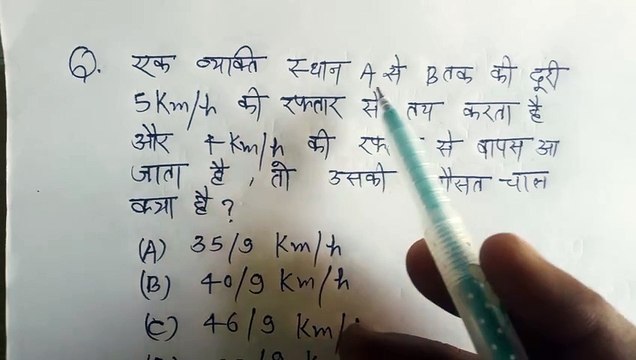 Q. एक व्यक्ति स्थान A से B तक की दूरी
5 Km/h की रफ्तार से तय करता है
और 4 Km/h की से वापस आ
जाता है, तो उसकी चाल
क्या है?
(A) 35/9 Km/h
(B) 40/9 Km/h
(C) 46/9 Km/